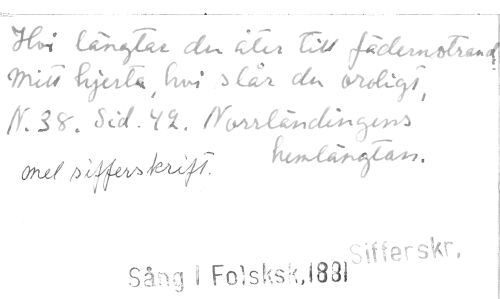 Hvi längtar du åter till fädernstrand
Mitt hjerta, hvi slår du oroligt,
N. 38. Sid. 42. Norrländingens
hemlängtan.
mel sifferskrift.
Sifferskr.
Sång i Folsksk.,1881